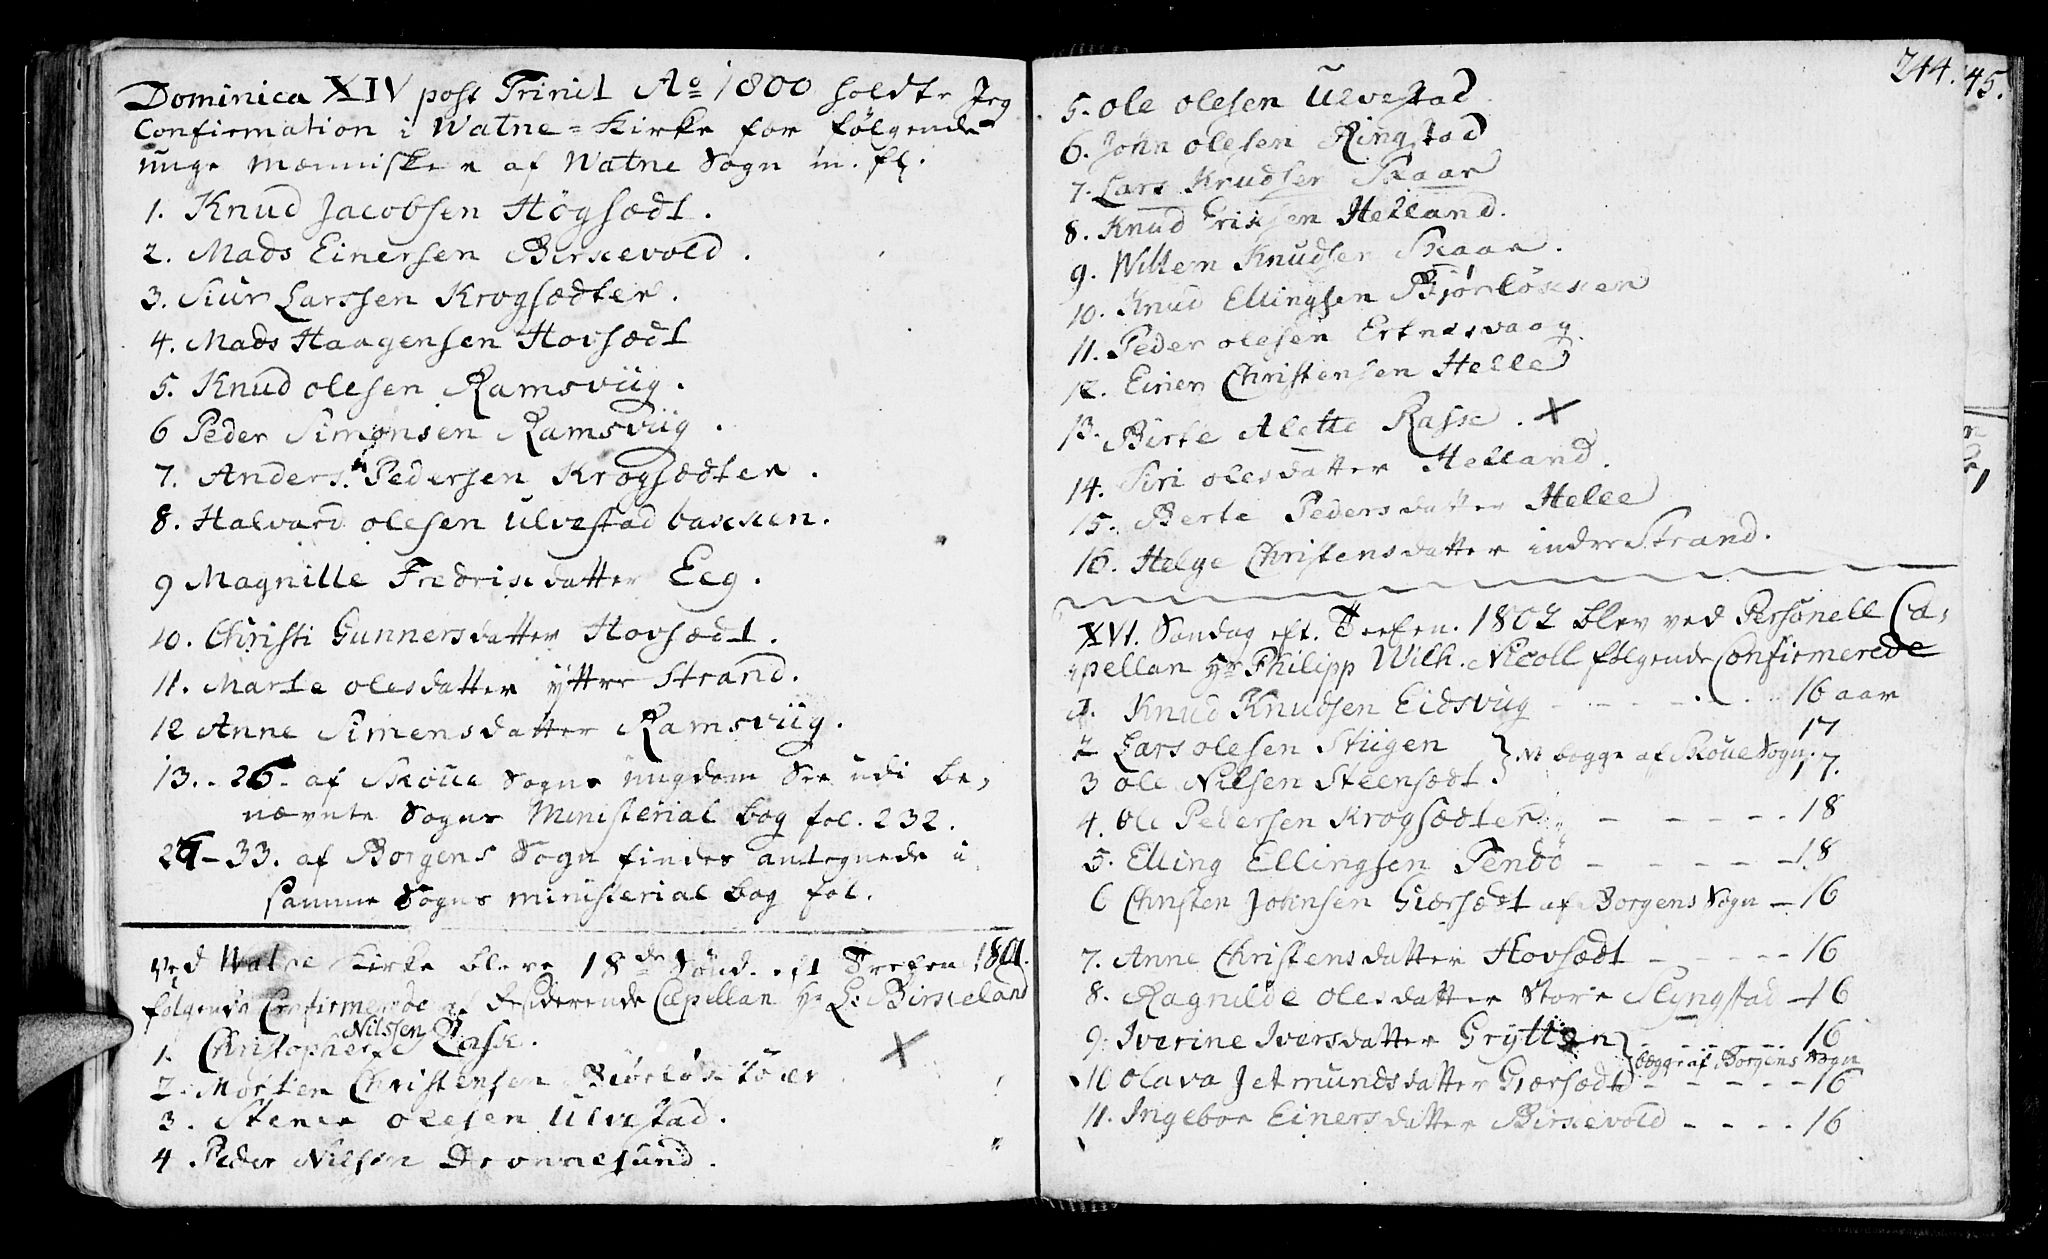 Dominica XIV post Trinit Aº 1800 holdte Jeg
Confirmation i Watne-Kirke for følgende
unge Mennisker af Watne Sogn m. fl.
1. Knud Jacobsen Högsædt.
2. Mads Einersen Birkevold.
3. Siur Larssen Krogsædter.
4. Mads Haagensen Hovsædt
5. Knud olesen Ramsviig.
6 Peder Simonsen Ramsviig.
7. Anders Pedersen Krogsædter.
8. Halvard olesen Ulvestad bakken.
9 Magnille Fredrikdatter Eeg.
10. Christi Gunnersdatter Hovsædt.
11. Marte olesdatter yttre Strand.
12 Anne Simensdatter Ramsviig.
13.-26. af Skoue Sogns ungdom See udi be-
nævnte Sogns Ministerial bog fol. 232.
27-33. af Borgens Sogn findes antegnede i
samme Sogns ministerial bog fol.
Ved Watne Kirke bleve 18de Sönd. eft Trefen 1801.
følgende Confirmerede af Residerende Capellan Hr L. Birkeland
Nilssen
1. Christopher Rask.
2. Morten Christensen
3. Stener olesen Ulvestad.
4 Peder Nilsen Dronnesund.
244.
45.
5. Ole olesen Ulvestad
6. John olesen Ringstad
7. Lars Knudsen Skaar
8. Knud Eriksen Helland.
9. Willem Knudsen Skaar.
10. Knud Ellingsen Björlökken
11. Peder olesen Erknesvaag.
12. Einer Christensen Helle
13. Birte Alette Raske. X
14. Siri olesdatter Helland.
15. Berte Pedersdatter Helle
16. Helge Christensdatter indre Strand.
XVI. Søndag eft. Trefen. 1802 blev ved Personell Ca-
pellan Hr Philipp Wilh. Nicoll følgende Confirmerede
1. Knud Knudsen Eidsviig - - - - 16 aar
2 Lars olesen Stiigen 17
} No begge af Skoue Sogn
3 Ole Nilsen Steensædt 17.
4. Ole Pedersen Krogsædter - - - - - 18
5. Elling Ellingsen Tendö - - - - - 18
6 Christen Johnsen Giærsædt af Borgens Sogn - 16
7. Anne Christensdatter Hovsædt - - - - - 16
8. Ragnilde olesdatter Store Slyngstad - 16
9. Iverine Iversdatter Grytten - - - - 16
} begge af Borgens Sogn
10 Olava Jetmundsdatter Giærsædt - - - - - 16
11. Ingebor Einersdatter Birkevold - - - - 16